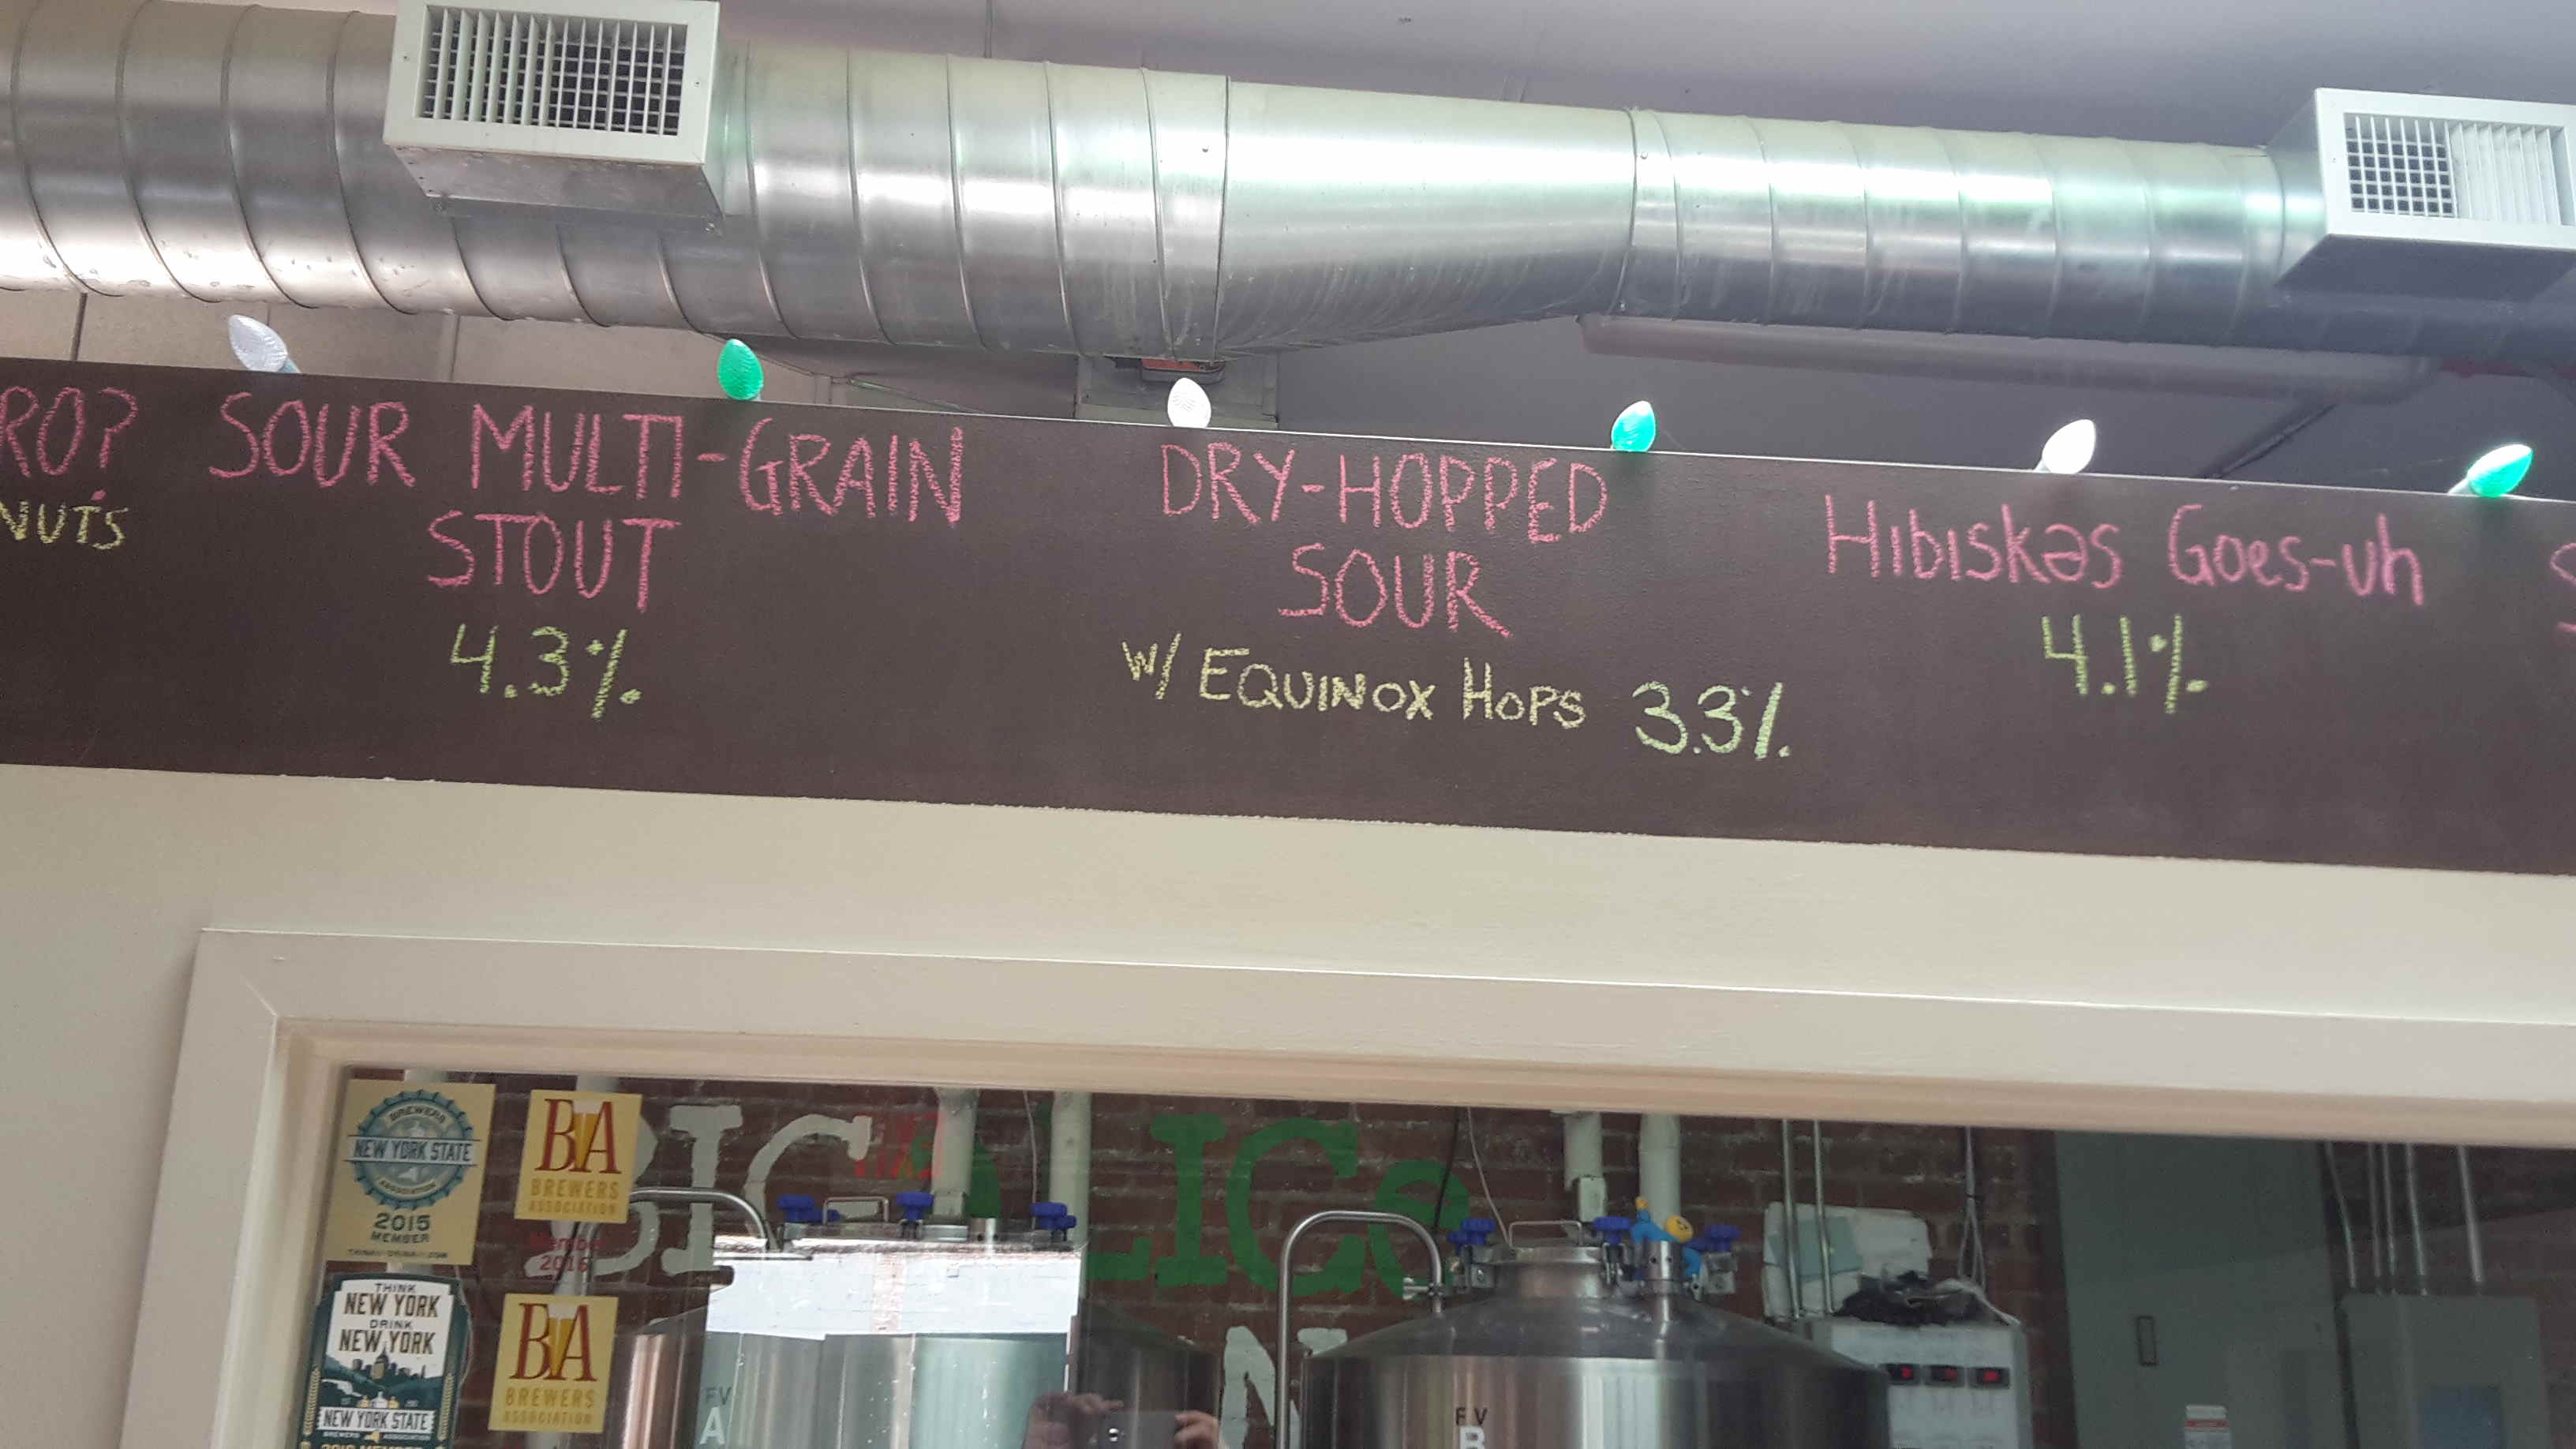 RO?
NUTS
SOUR MULTI-GRAIN
STOUT
4.3%
DRY-HOPPED
SOUR
W/ EQUINOX HOPS 3.3%
Hibiskəs Goes-uh
4.1%
BREWERS
NEW YORK STATE
ASSOCIATION
2015
MEMBER
BA
BREWERS
ASSOCIATION
Member
2016
THINK
NEW YORK
DRINK
NEW YORK
NEW YORK STATE
BREWERS ASSOCIATION
2016 MEMBER
BA
BREWERS
ASSOCIATION
BIG ALICE
FV
A
FV
B